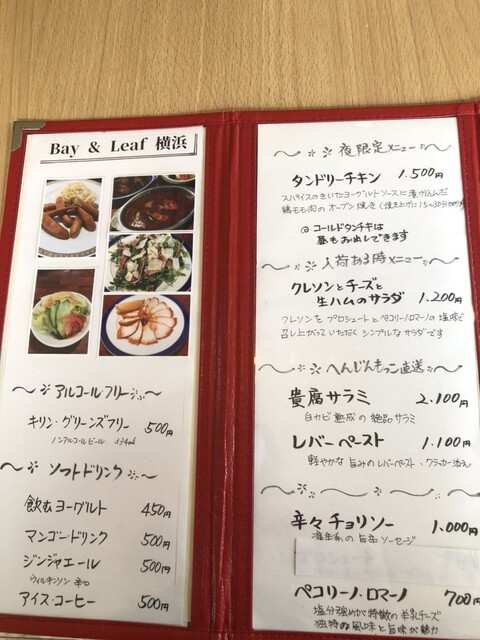 Bay & Leaf 横浜
アルコールフリー
キリン・グリーンズフリー 500円
ノンアルコールビール 334ml
ソフトドリンク
飲むヨーグルト 450円
マンゴー・ドリンク 500円
ジンジャエール 500円
ウィルキンソン 辛口
アイス・コーヒー 500円
夜限定メニュー
タンドリーチキン 1.500円
スパイスのきいたヨーグルトソースに漬け込んだ
鶏もも肉のオーブン焼き(焼き上げに15~30分
@コールドタンチキは
昼もお出しできます
入荷ある時メニュー
クレソンとチーズと
生ハムのサラダ 1.200円
クレソンを プロシュートと ペコリーノ・ロマーノの 塩味で
召し上がって いただく シンプルな サラダです
へんじんもっこ直送
貴腐サラミ 2.100円
白カビ熟成の 絶品サラミ
レバーペースト 1.100円
軽やかな 旨みのレバーペースト、クラッカー添え
辛々チョリソー 1.000円
旨辛ソーセージ
ペコリーノ・ロマーノ 700円
塩分強めが特徴の羊乳チーズ
独特の風味と旨味が魅力